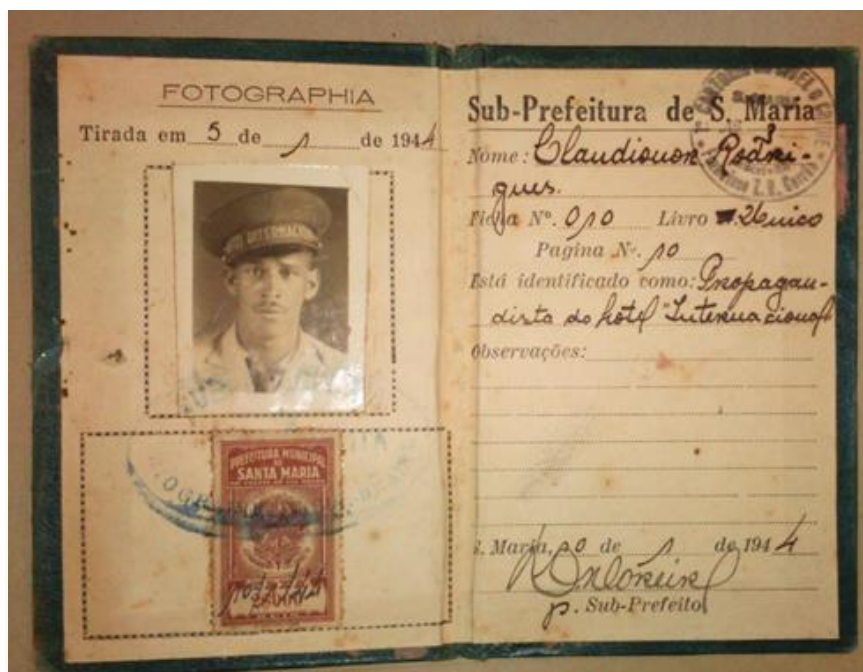 FOTOGRAPHIA
Tirada em 5 de 1 de 1944
HOTEL INTERNACIONAL
PREFEITURA MUNICIPAL
DE
SANTA MARIA
Sub-Prefeitura de S. Maria
Nome: Claudionor Rodri-
gues.
Ficha Nº. 010 Livro Unico
Pagina Nº. 10
Está identificado como: Propagan-
dista do hotel "Internacional"
Observações:
S. Maria, 10 de 1 de 1944
p. Sub-Prefeito